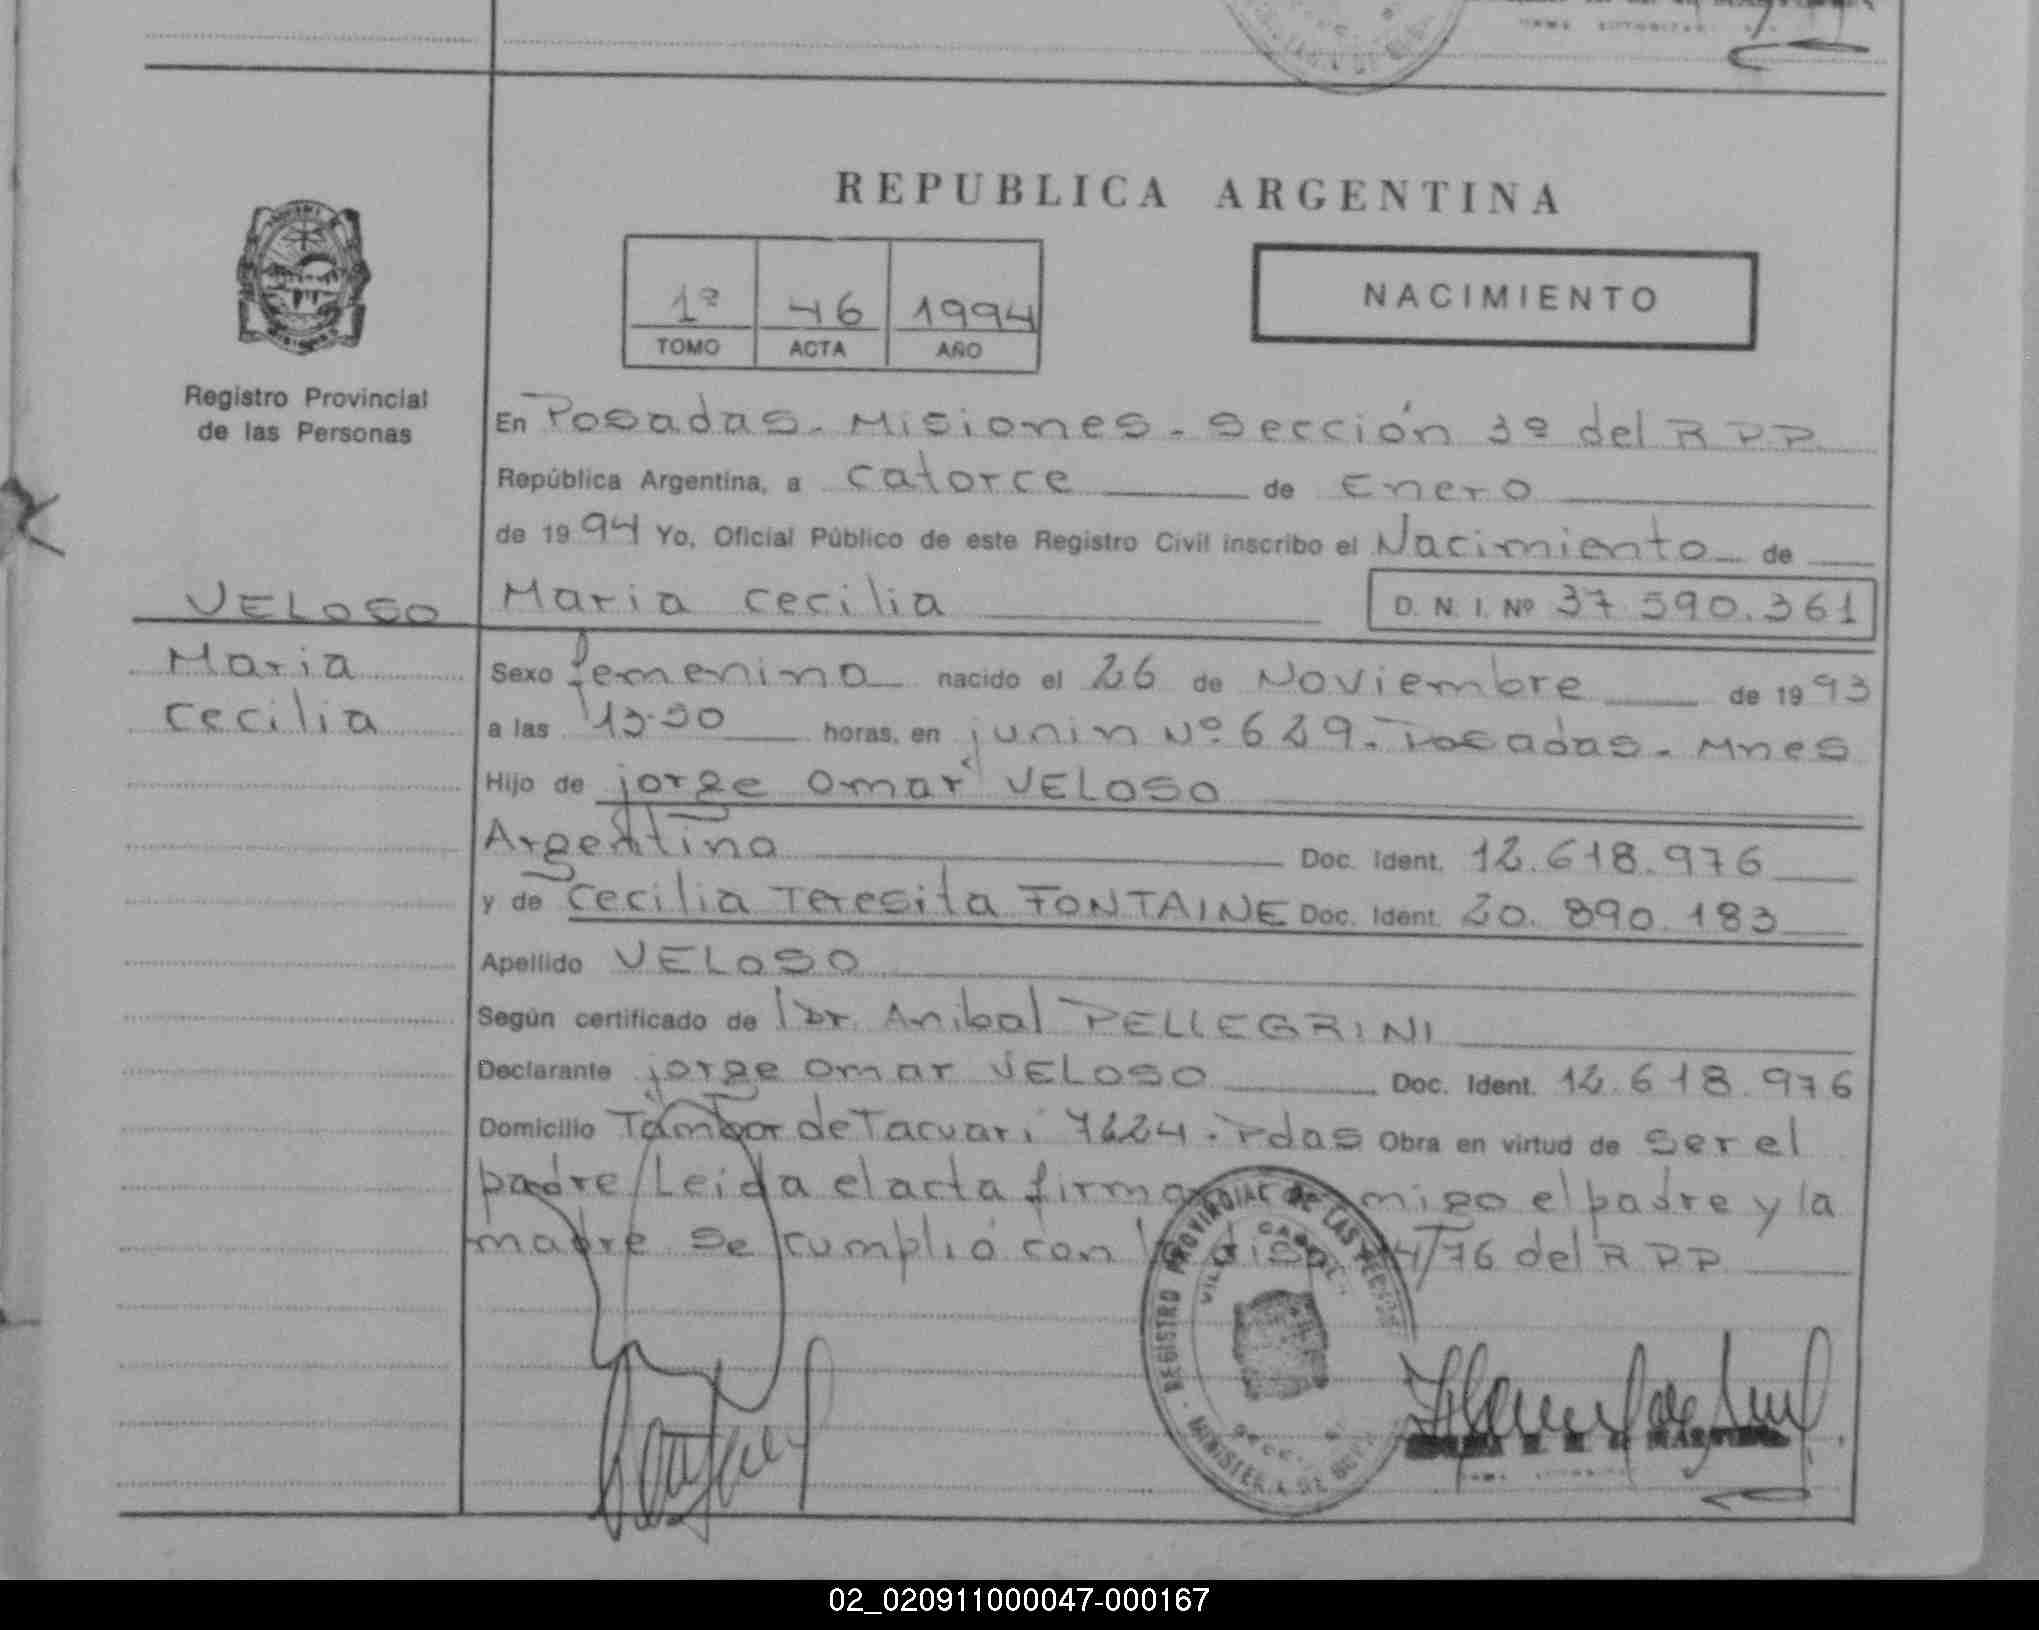 REPUBLICA ARGENTINA
1º 46 1994
TOMO ACTA AÑO
NACIMIENTO
Registro Provincial
de las Personas
En Posadas - Misiones - Sección 3º del R P P
República Argentina, a catorce de Enero
de 1994 Yo, Oficial Público de este Registro Civil inscribo el Nacimiento de
VELOSO
Maria Cecilia D. N. I. Nº 37 590.361
Maria
Cecilia
Sexo femenino nacido el 26 de Noviembre de 1993
a las horas, en junin Nº 629 - Posadas - Mnes
Hijo de jorge Omar VELOSO
Argentino Doc. Ident. 12.618.976
y de Cecilia Teresita FONTAINE Doc. Ident. 20.890.183
Apellido VELOSO
Según certificado de Dr. Anibal PELLEGRINI
Declarante jorge Omar VELOSO Doc. Ident. 12.618.976
Domicilio Tambor de Tacuari - Pdas Obra en virtud de ser el
padre/Leida el acta el padre y la
madre se cumplió con /76 del R P P
REGISTRO PROVINCIAL DE LAS PERSONAS
VILLA CABELLO
02_020911000047-000167